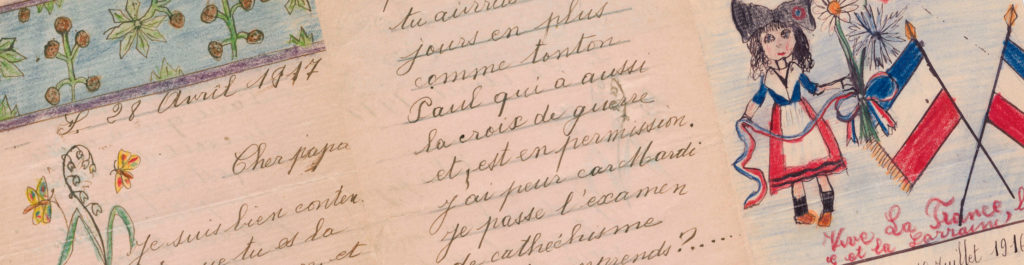 S. 28 Avril 1917
Cher papa
Je suis bien conten
que tu es la
et
tu aurras
jours en plus
comme tonton
Paul qui a aussi
la croix de guerre
et, est en permission.
j'ai peur car Mardi
je passe l'examen
de cathéchisme
prends ?......
Vive La France,
et la Lorraine,
Juillet 1916